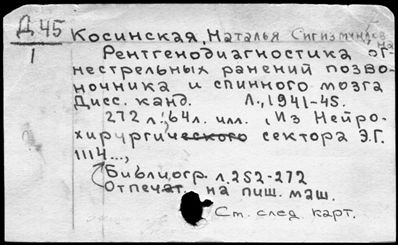 Д.45
1
Косинская, Наталья Сигизмундовна
Рентгенодиагностика ог-
нестрельных ранений позво-
ночника и спинного мозга
Дисс. канд. Л., 1941-45.
272 л.; 64л. илл. (Из Нейро-
хирургического сектора Э.Г.
1114...,
Библиогр. л. 252-272
Отпечат. на пиш. маш.
См. след. карт.